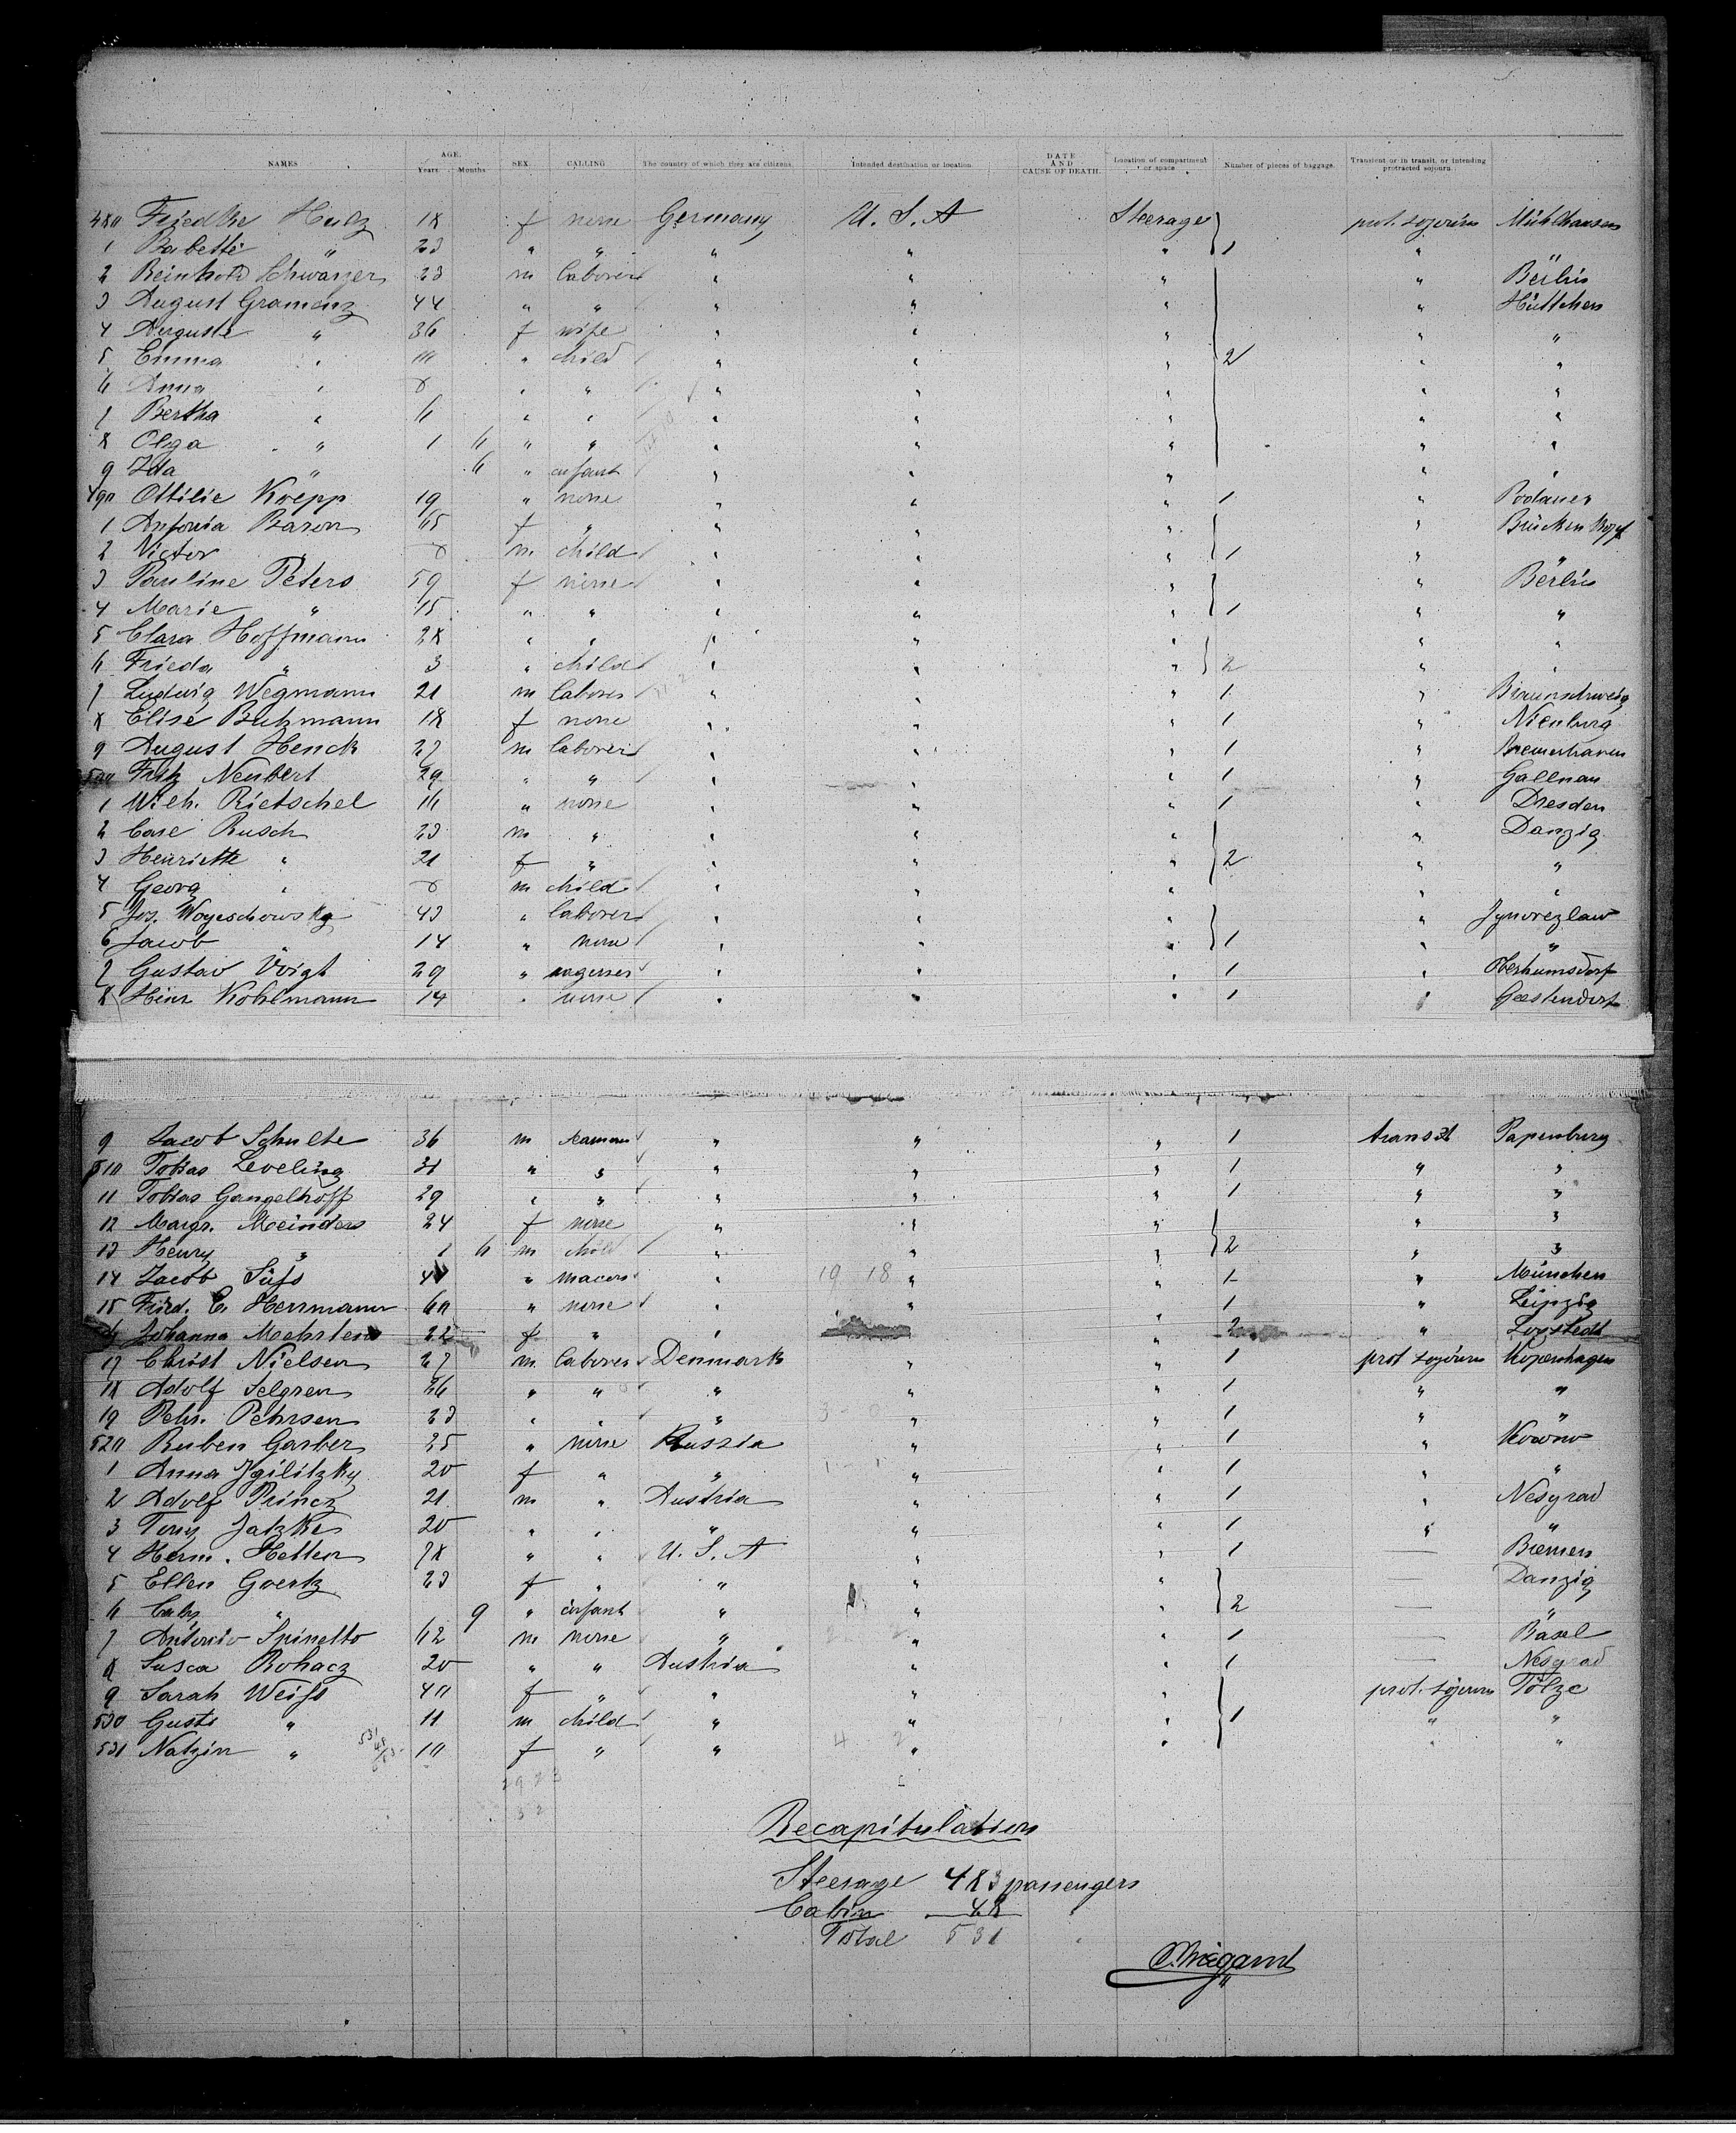 NAMES AGE. Years Months SEX. CALLING The country of which they are citizens. Intended destination or location. DATE AND CAUSE OF DEATH. Location of compartment or space Number of pieces of baggage. Transient or in transit, or intending protracted sojourn.
480 Friedke Hulz 18 f none Germany U. S. A Steerage prot. sojourn Mühlhausen
1 Babette " 23 " " " " " 1 "
2 Reinhold Schwarzer 23 m laborer " " " " Berlin
3 August Gramenz 44 " " " " " " Hüttchen
4 Auguste " 36 f wife " " " " "
5 Emma " 10 " child " " " 2 " "
6 Anna " 8 " " " " " " "
7 Bertha " 6 " " " " " " "
8 Olga " 1 6 " " " " " " "
9 Ida " 6 " infant " " " " "
490 Ottilie Koepp 19 " none " " " 1 "
1 Antonia Baron 65 f " " " " "
2 Victor " 8 m child " " " 1 " "
3 Pauline Peters 59 f none " " " " Berlin
4 Marie " 15 " " " " " 1 " "
5 Clara Hoffmann 28 " " " " " " "
6 Frieda " 3 " child " " " 2 " "
7 Ludwig Wegmann 21 m laborer " " " 1 " Braunschweig
8 Elise Buhmann 18 f none " " " 1 " Nienburg
9 August Henck 27 m laborer " " " 1 " Bremerhaven
500 Fritz Neubert 29 " " " " " 1 " Gallnau
1 Wilh. Rietschel 16 " none " " " 1 " Dresden
2 Carl Rusch 23 m " " " " " Danzig
3 Henriette " 21 f " " " " 2 " "
4 Georg " 8 m child " " " " "
5 Jos. Woyeschowsky 43 " laborer " " " "
6 Jacob " 14 " none " " " 1 " "
7 Gustav Voigt 29 " " " " 1 "
8 Hinr Kohlmann 14 " none " " " 1 " Geestendorf
9 Jacob Schulte 36 m seaman " " " 1 transit Papenburg
510 Tobias Leveling 31 " " " " " 1 " "
11 Tobias Gangelhoff 29 " " " " " 1 " "
12 Margr. Meinders 24 f none " " " " "
13 Henry " 1 6 m child " " " 2 " "
14 Jacob Süfs " " 19 18 " " 1 " München
15 Fried. C. Herrmann 60 " none " " " 1 " Leipzig
16 Johanna Mehrtens 22 f " " " 2 " Loxstedt
17 Christ Nielsen 27 m laborer Denmark " " 1 prot sojourn Kopenhagen
18 Adolf Selgren 26 " " " " " 1 " "
19 Pehr. Pehrsen 23 " " " " " 1 " "
520 Ruben Garber 25 " none Russia " " 1 " Kowno
1 Anna Jgilitzky 20 f " " " " 1 " "
2 Adolf Princz 21 m " Austria " " 1 "
3 Tony Jatzkes 20 " " " " " 1 " "
4 Herm. Hellen 78 " " U. S. A " " 1 — Bremen
5 Ellen Goertz 23 f " " " " — Danzig
6 " 9 " infant " " " 2 — "
7 Antonio Spinetto 62 m none " " " 1 — Basel
8 Susca Bohacz 20 " " Austria " " 1 —
9 Sarah Weifs 40 f " " " " prot. sojourn Tölze
530 Gusti " 11 m child " " " 1 " "
531 Natzin " 10 f " " " " " "
Recapitulation
Steerage 483 passengers
Cabin 48
Total 531
C. Wiegand